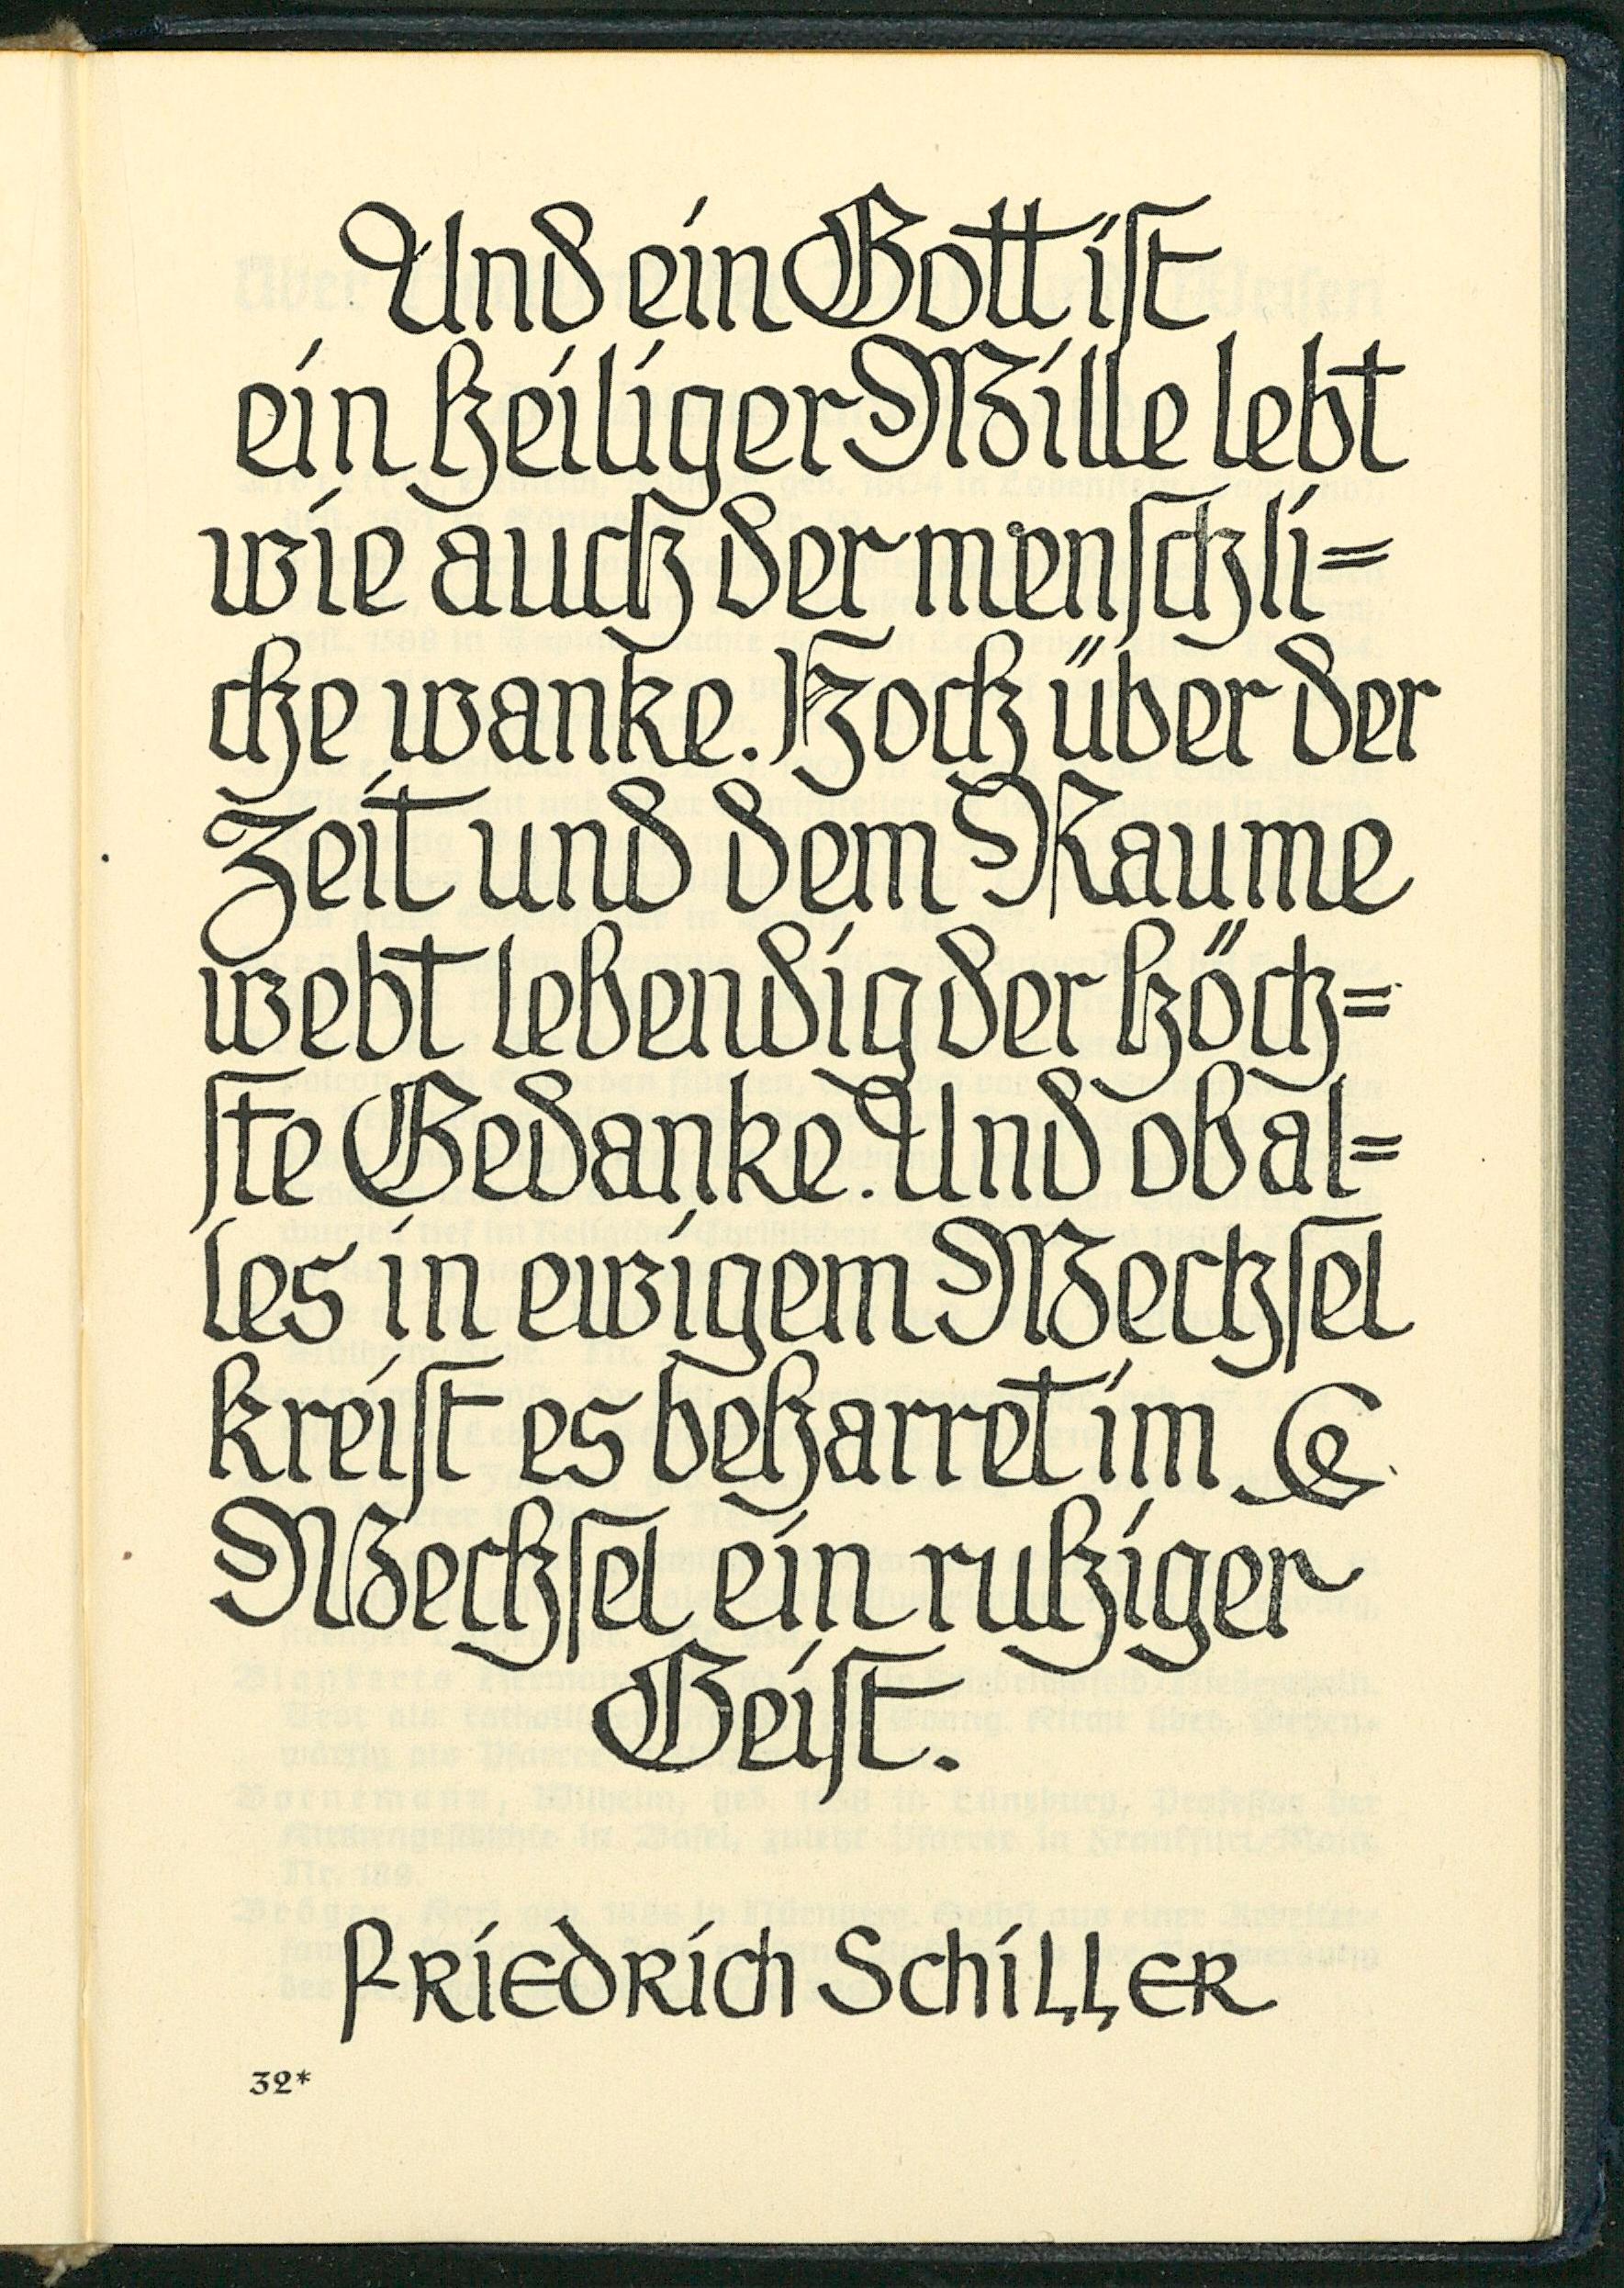 Und ein Gott ist
ein heiliger Wille lebt
wie auch der menschli=
che wanke. Hoch über der
Zeit und dem Raume
webt lebendig der höch=
ste Gedanke. Und ob al=
les in ewigem Wechsel
kreist es beharret im
Wechsel ein ruhiger
Geist.
Friedrich Schiller
32*